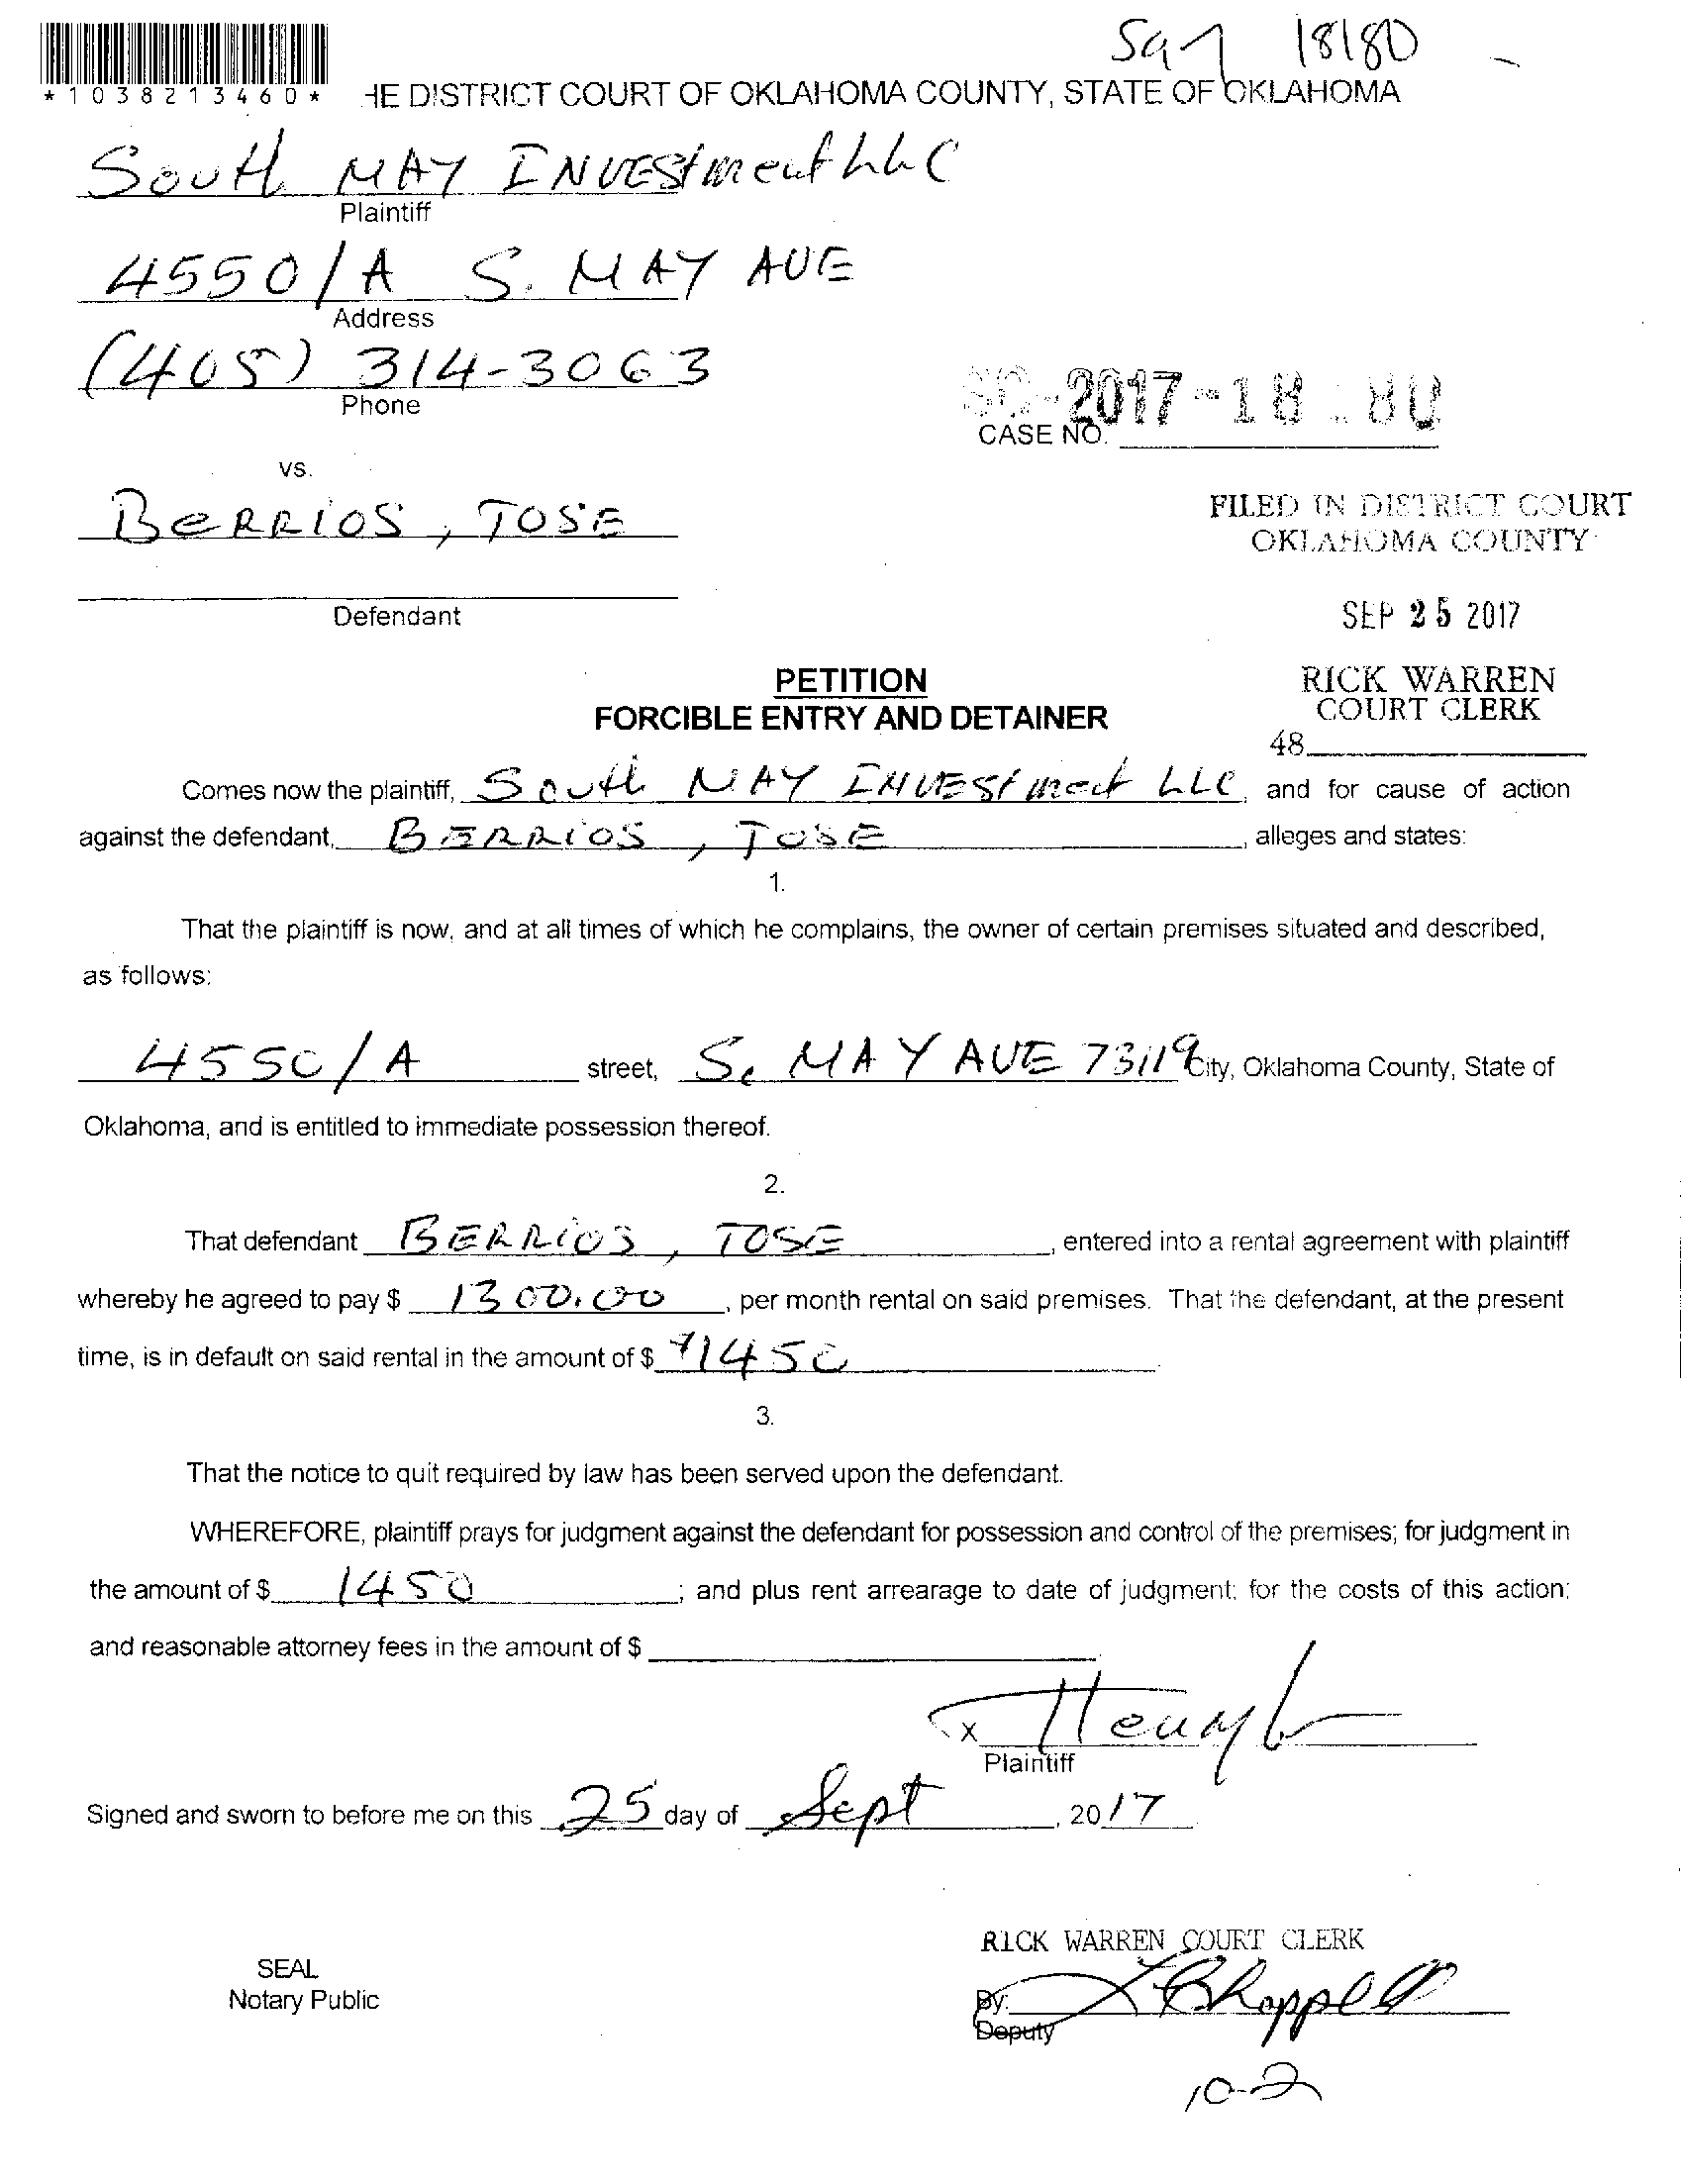 18180
*1038213460* HE DISTRICT COURT OF OKLAHOMA COUNTY, STATE OF OKLAHOMA
South MAY INVEStment LLC
Plaintiff
4550/A S. MAY AVE
Address
(405) 314-3063
Phone
SC-2017-18180
CASE NO.
vs.
BERRIOS, JOSE
FILED IN DISTRICT COURT
OKLAHOMA COUNTY
Defendant
SEP 25 2017
PETITION
FORCIBLE ENTRY AND DETAINER
RICK WARREN
COURT CLERK
48
Comes now the plaintiff, South MAY INVEStment LLC, and for cause of action
against the defendant, BERRIOS, JOSE, alleges and states:
1.
That the plaintiff is now, and at all times of which he complains, the owner of certain premises situated and described,
as follows:
4550/A street, S. MAY AVE 73119 City, Oklahoma County, State of
Oklahoma, and is entitled to immediate possession thereof.
2.
That defendant BERRIOS, JOSE, entered into a rental agreement with plaintiff
whereby he agreed to pay $ 1300.00, per month rental on said premises. That the defendant, at the present
time, is in default on said rental in the amount of $ 1450.
3.
That the notice to quit required by law has been served upon the defendant.
WHEREFORE, plaintiff prays for judgment against the defendant for possession and control of the premises; for judgment in
the amount of $ 1450; and plus rent arrearage to date of judgment; for the costs of this action;
and reasonable attorney fees in the amount of $
x
Plaintiff
Signed and sworn to before me on this 25 day of Sept, 2017
RICK WARREN COURT CLERK
SEAL
Notary Public
By:
Deputy
10-2